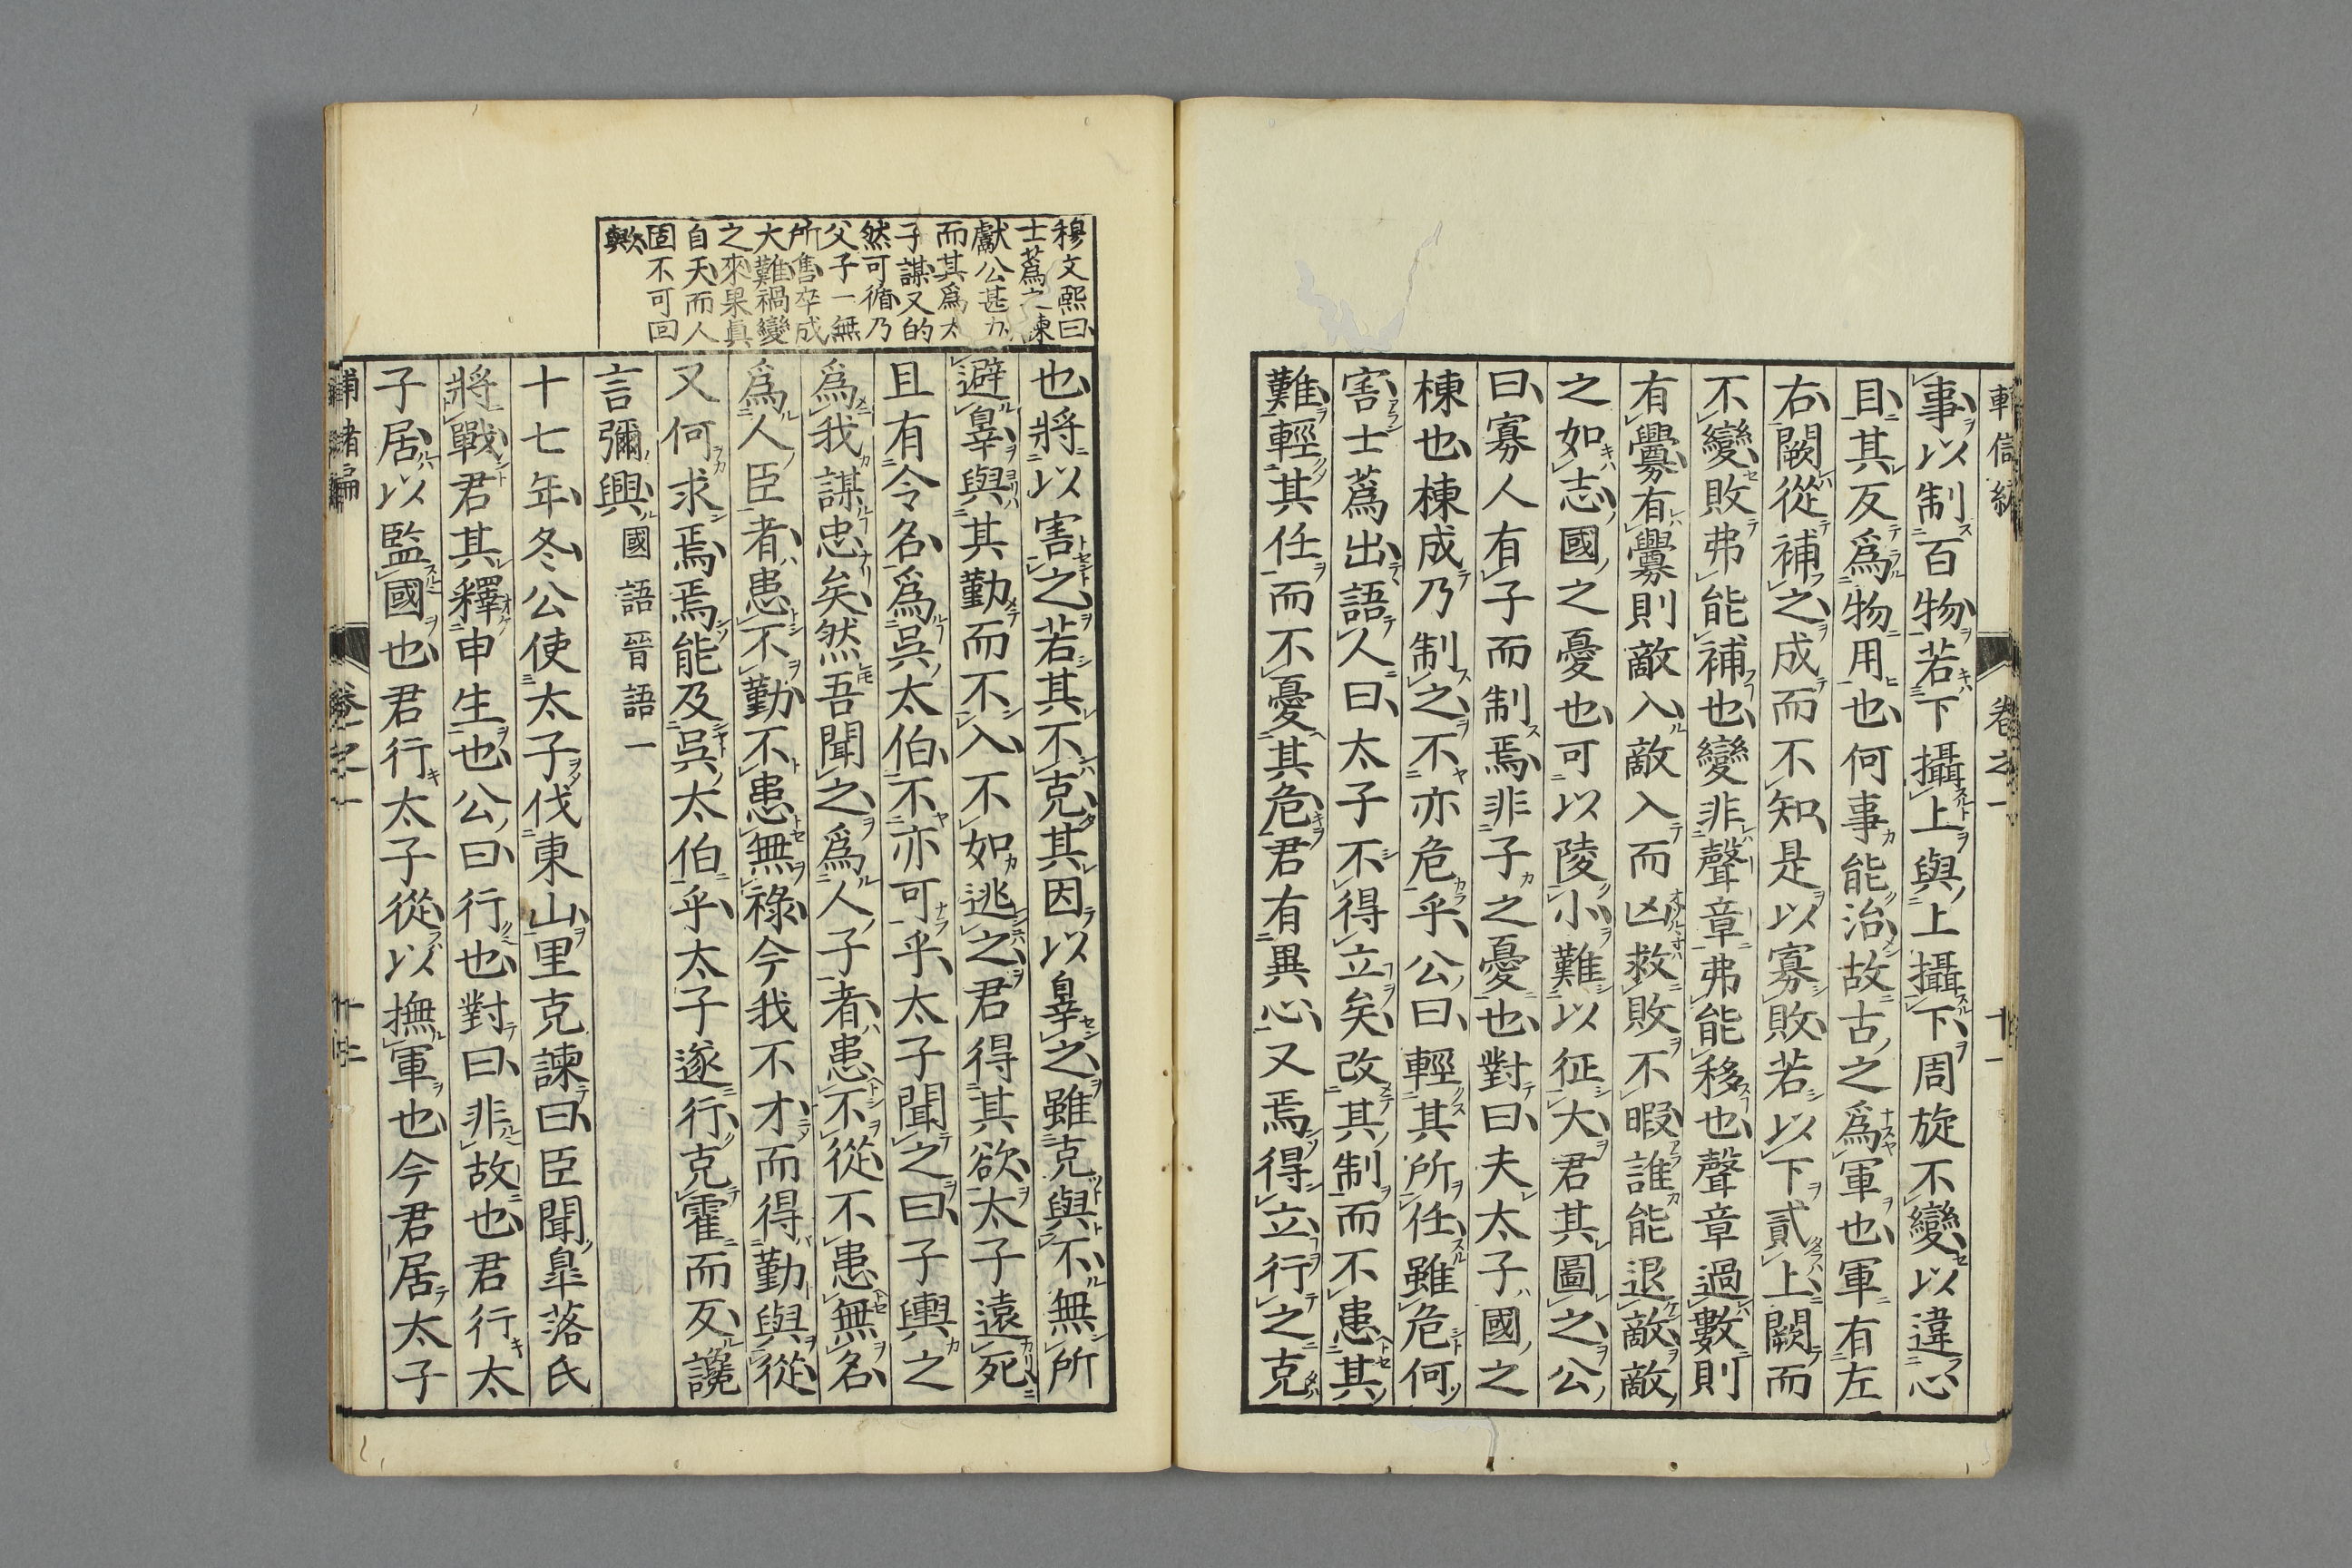 卷之一
十一
事以制百物若下攝上與上攝下周旋不變以違心
目其反爲物用也何事能治故古之爲軍也軍有左
右闕從補之成而不知是以寡敗若以下貳上闕而
不變敗弗能補也變非聲章弗能移也聲章過數則
有釁有釁則敵入敵入而凶救敗不暇誰能退敵敵
之如志國之憂也可以陵小難以征大君其圖之公
曰寡人有子而制焉非子之憂也對曰夫太子國之
棟也棟成乃制之不亦危乎公曰輕其所任雖危何
害士蔿出語人曰太子不得立矣改其制而不患其
難輕其任而不憂其危君有異心又焉得立行之克
穆文熙曰
士蔿之諫
獻公甚力
而其爲太
子謀又的
然可循乃
父子一無
所售卒成
大難禍變
之來果眞
自天而人
固不可回
歟
也將以害之若其不克其因以辠之雖克與不無所
避辠與其勤而不入不如逃之君得其欲太子遠死
且有令名爲吳太伯不亦可乎太子聞之曰子輿之
爲我謀忠矣然吾聞之爲人子者患不從不患無名
爲人臣者患不勤不患無祿今我不才而得勤與從
又何求焉焉能及吳太伯乎太子遂行克霍而反讒
言彌興國語晉語一
十七年冬公使太子伐東山里克諫曰臣聞臯落氏
將戰君其釋申生也公曰行也對曰非故也君行太
子居以監國也君行太子從以撫軍也今君居太子
卷之一